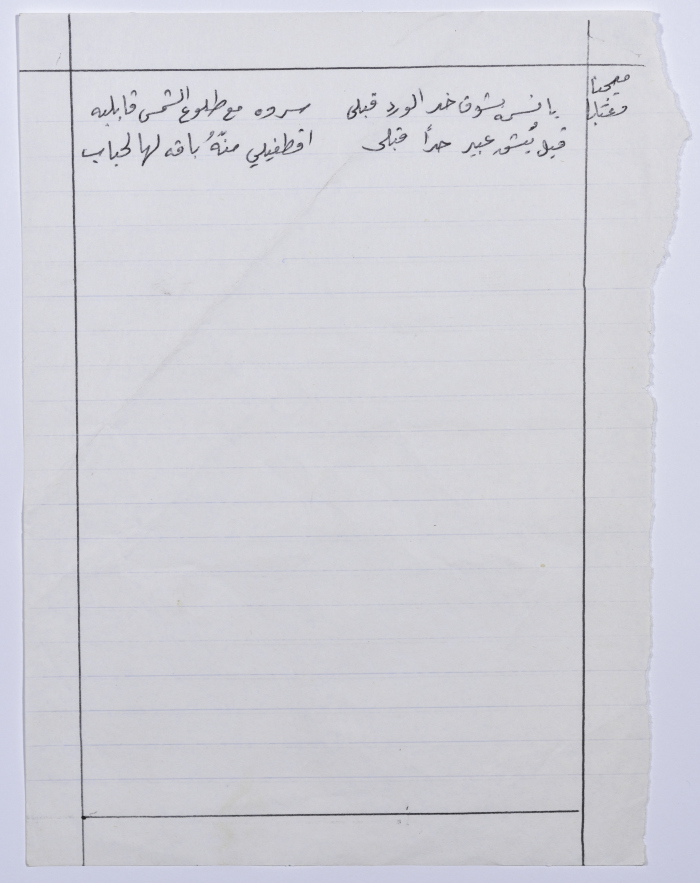 ميجنا
وعتابا
يا نسمه بشوق خد الورد قبلي سروه مع طلوع الشمس قابليه
قبل يُنشق عبير حداً قبلي اقطفيلي منّهُ باقه لهالحباب